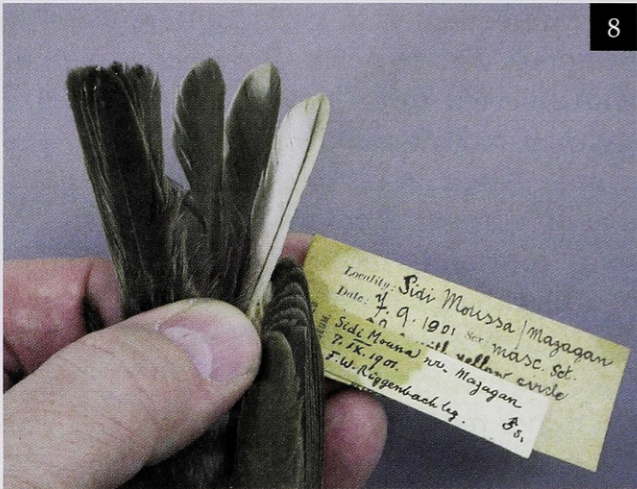 8
Locality: Sidi Moussa / Mazagan
Date: 7.9.1901 Sex: masc. Set.
yellow circle
Sidi Moussa nr. Mazagan
7.IX.1901.
F.W. Riggenbach leg. ♂ s.